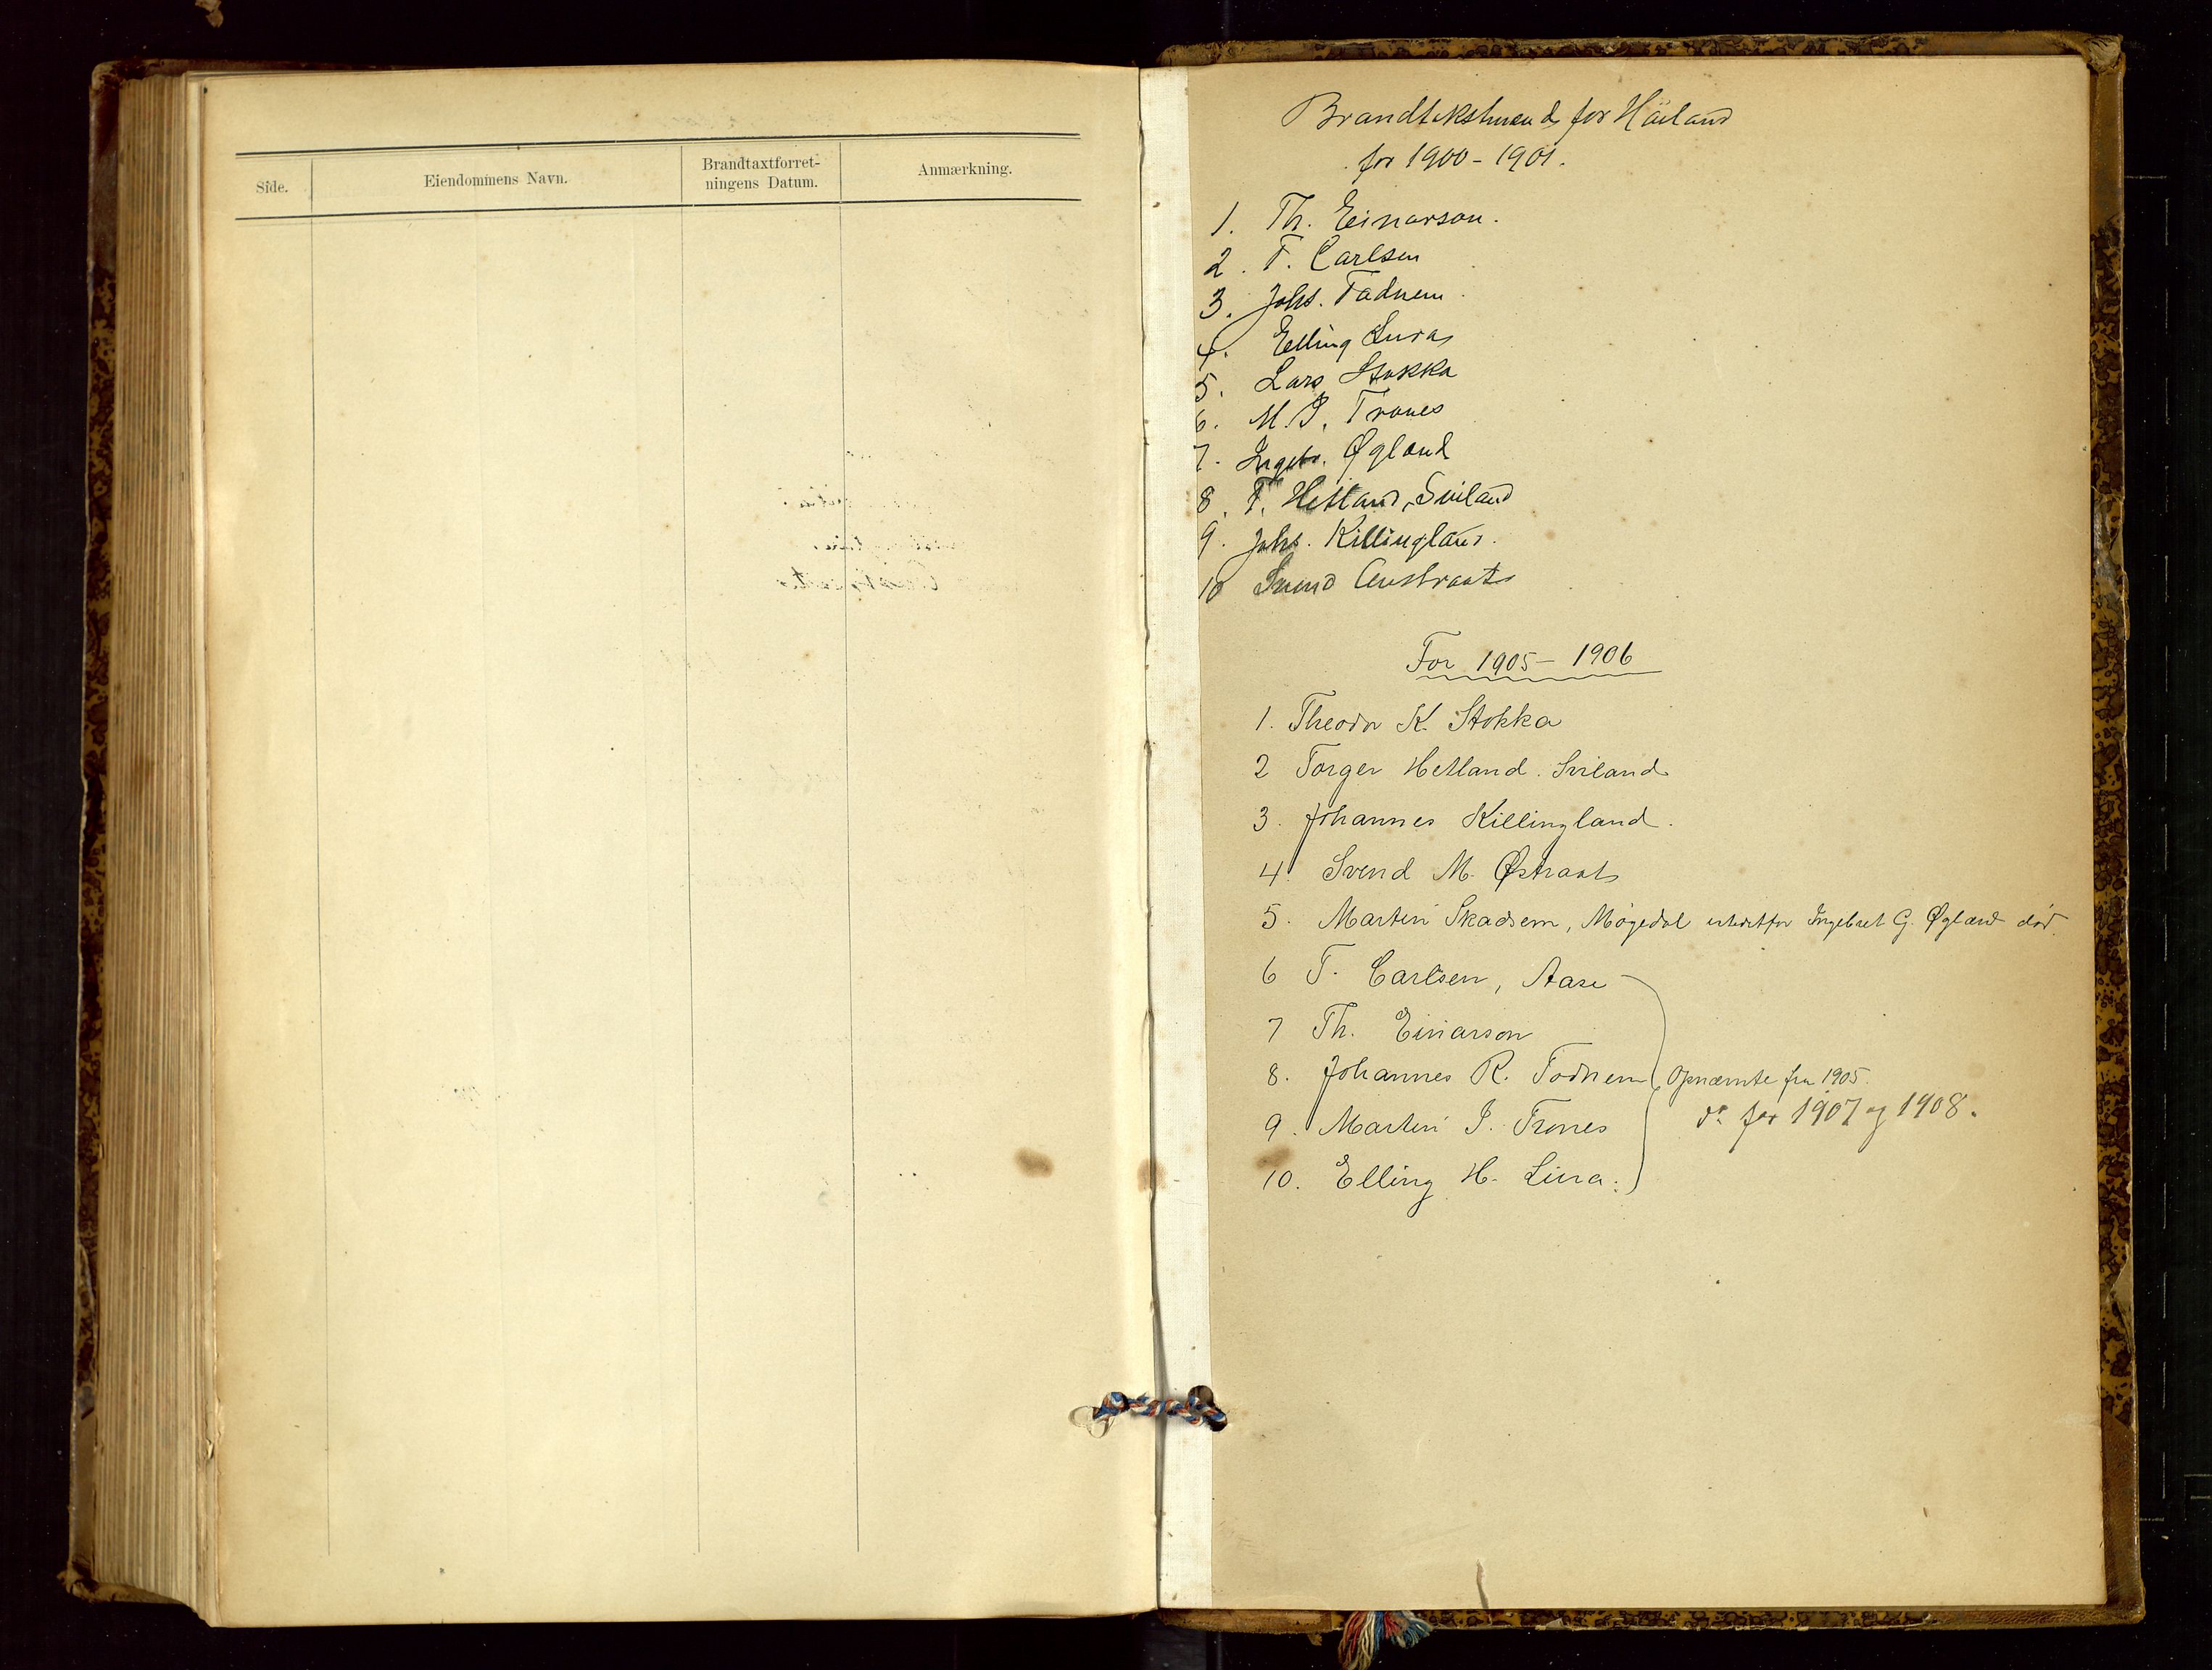 Side.
Eiendommens Navn.
Brandtaxtforret-
ningens Datum.
Anmærkning.
Brandtakstmænd for Høiland
for 1900-1901.
1. Th. Einarson.
2. T. Carlsen
3. Johs. Todnem.
4. Elling Lura
5. Lars Stokka
6. M. I. Trones
7. Ingebr. Øgland
8. T. Hetland, Sviland
9. Johs. Killingland.
10 Svend Austraat
For 1905-1906
1. Theodor K. Stokka
2 Torger Hetland. Sviland
3. Johannes Killingland.
4. Svend M. Østraat
5. Martin Skadsem, Møgedal istedetfor Ingebret G. Øgland død.
6 T. Carlsen, Aase
7 Th. Einarson
8. Johannes R. Todnem Opnævnte fra 1905.
9. Martin I. Trones do for 1907 og 1908.
10. Elling H. Lura.